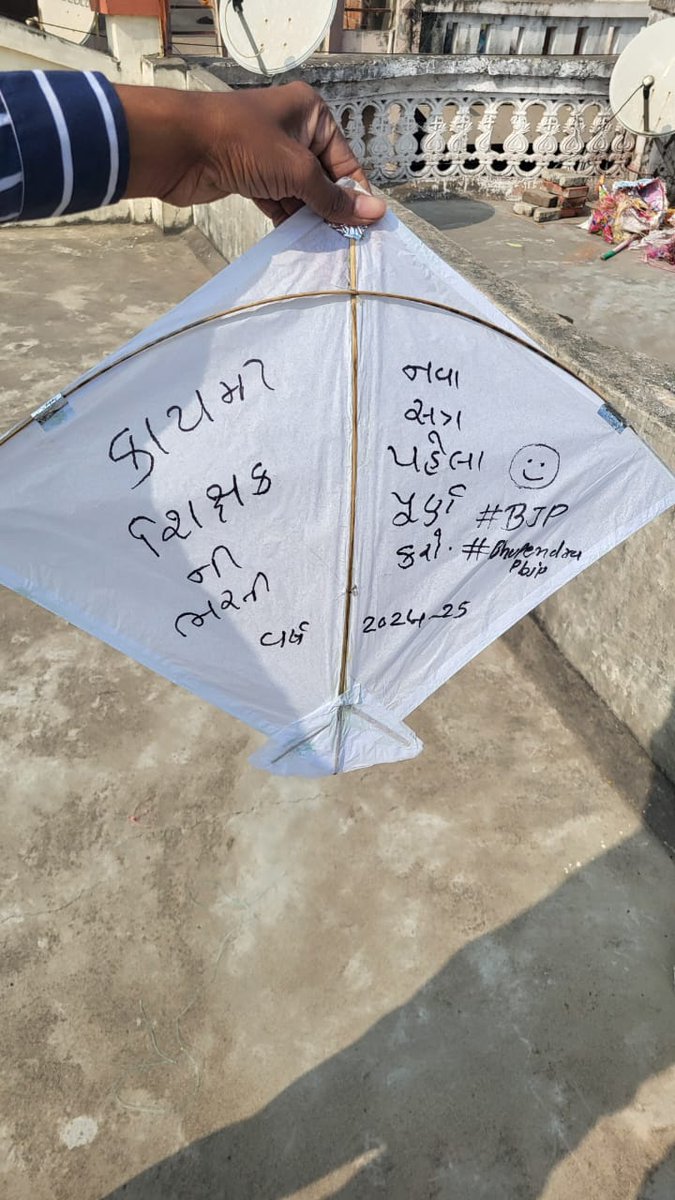 કાયમી
શિક્ષક
ની
ભરતી
નવા
સત્ર
પહેલા
પૂર્ણ #BJP
કરો. #Bhupendra
Pbjp
વર્ષ 2024-25